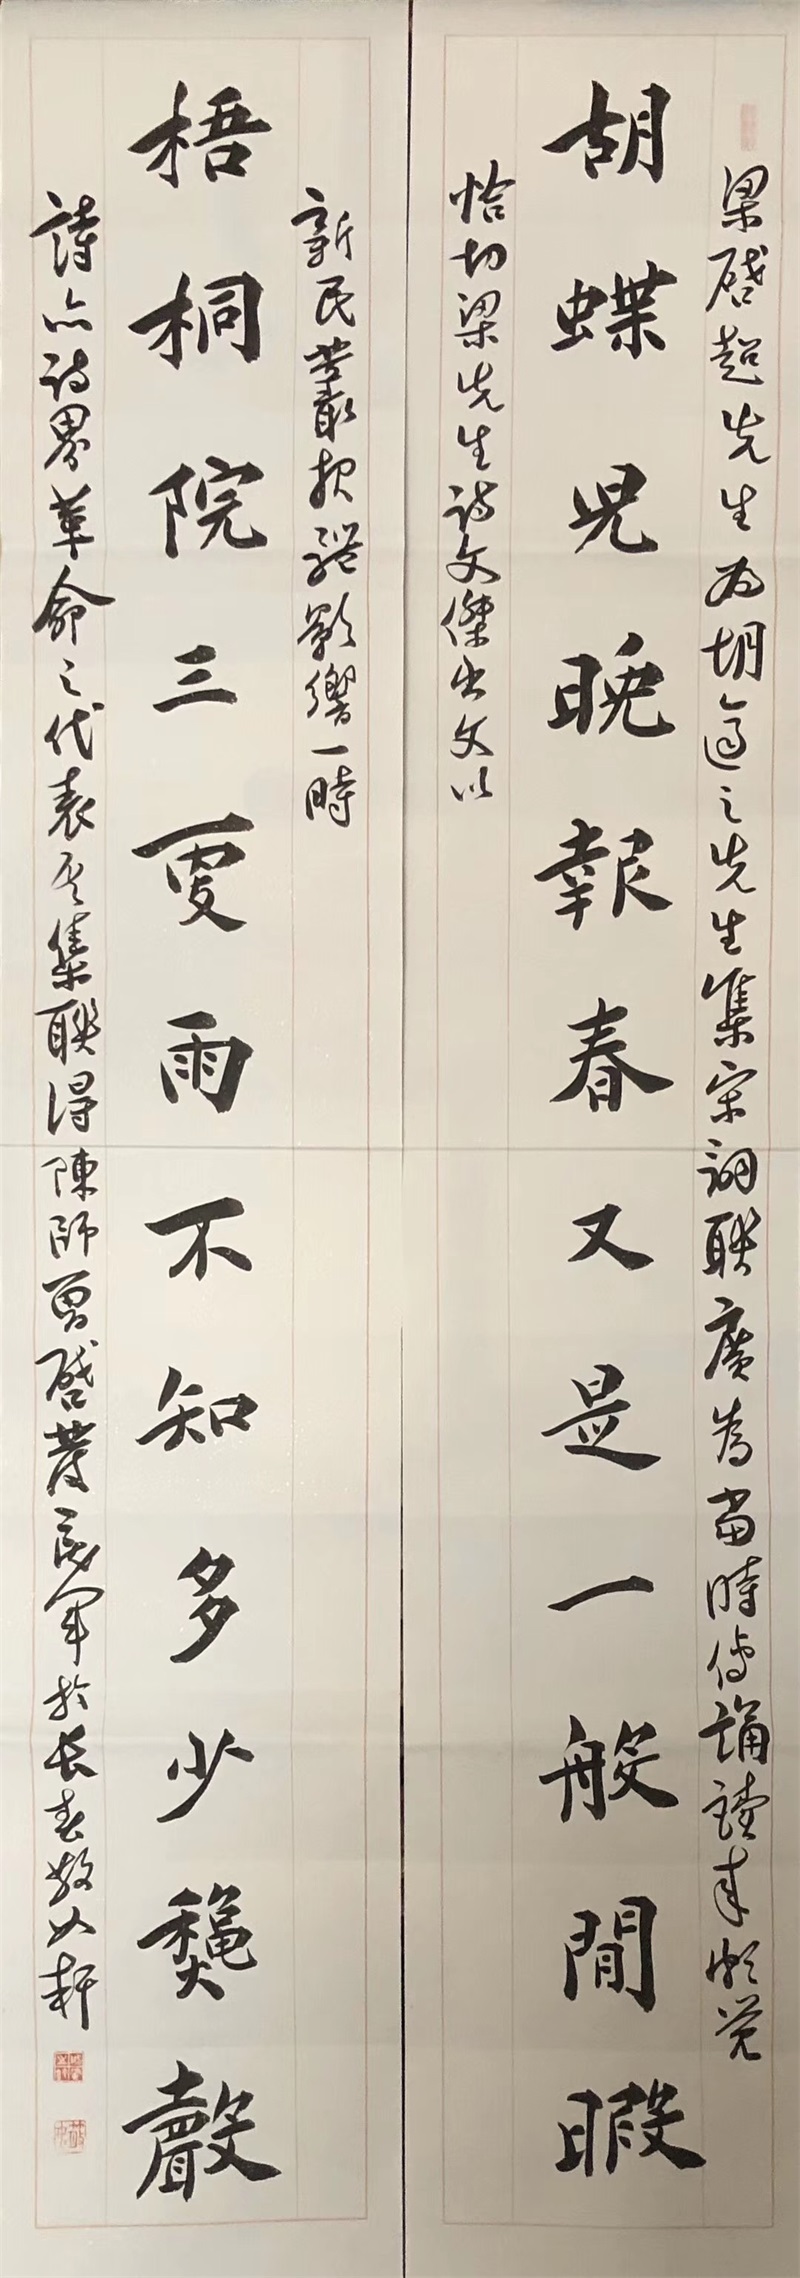 梁啓超先生為胡適之先生集宋詞聯廣為當時傳誦讀來頗覺
胡蝶兒晚報春又是一般閒暇
恰切梁先生詩文傑出文以
新民叢報影響一時
梧桐院三更雨不知多少龝聲
詩亦詩界革命之代表其集聯得陳師曾啓發民軍於長春散如軒